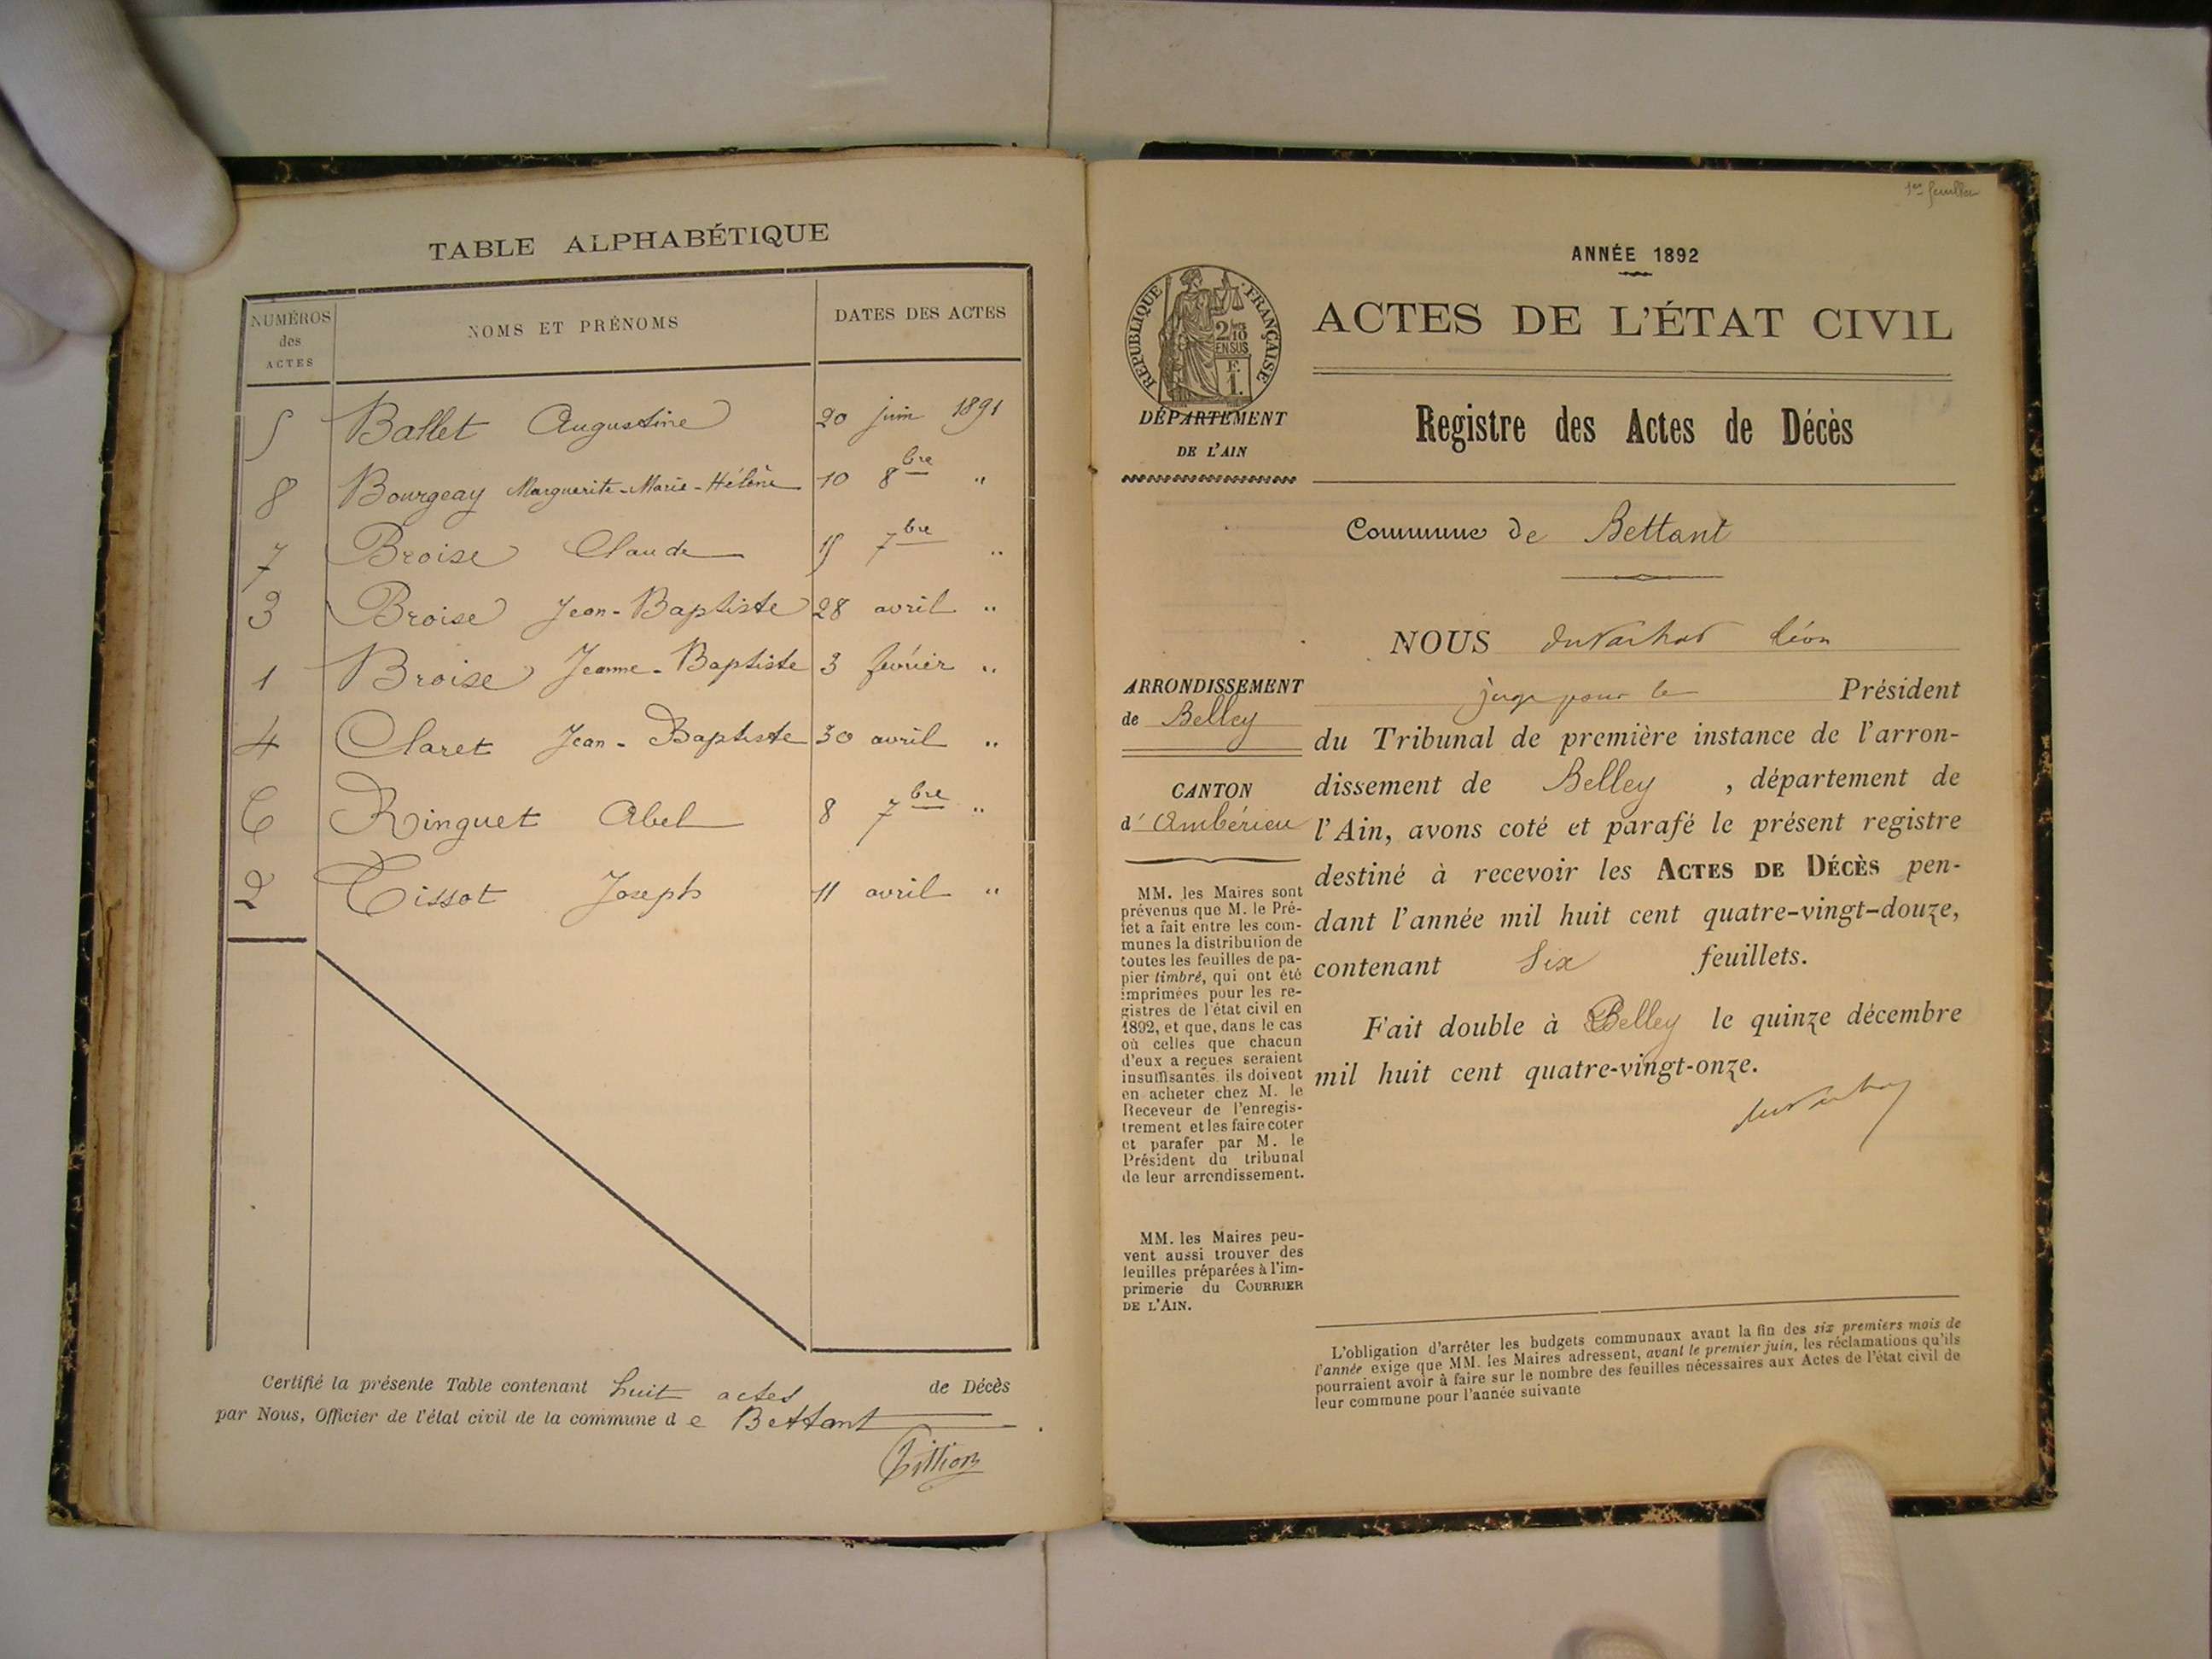 TABLE ALPHABÉTIQUE
NUMÉROS des ACTES
NOMS ET PRÉNOMS
DATES DES ACTES
5 Ballet Augustine 20 juin 1891
8 Bourgeay Marguerite-Marie-Hélène 10 8bre "
7 Broise Claude 15 7bre "
3 Broise Jean-Baptiste 28 avril "
1 Broise Jeanne-Baptiste 3 février "
4 Claret Jean-Baptiste 30 avril "
6 Ringuet Abel 8 7bre "
2 Tissot Joseph 11 avril "
Certifié la présente Table contenant huit actes de Décès
par Nous, Officier de l'état civil de la commune d e Bettant
1er feuillet
ANNÉE 1892
RÉPUBLIQUE FRANÇAISE
2/10 EN SUS
F. 1.
ACTES DE L'ÉTAT CIVIL
DÉPARTEMENT
DE L'AIN
Registre des Actes de Décès
Commune de Bettant
ARRONDISSEMENT
de Belley
CANTON
d' Ambérieu
MM. les Maires sont
prévenus que M. le Pré-
fet a fait entre les com-
munes la distribution de
toutes les feuilles de pa-
pier timbré, qui ont été
imprimées pour les re-
gistres de l'état civil en
1892, et que, dans le cas
où celles que chacun
d'eux a reçues seraient
insuffisantes, ils doivent
en acheter chez M. le
Receveur de l'enregis-
trement et les faire coter
et parafer par M. le
Président du tribunal
de leur arrondissement.
MM. les Maires peu-
vent aussi trouver des
feuilles préparées à l'im-
primerie du COURRIER
DE L'AIN.
NOUS Léon
juge pour le Président
du Tribunal de première instance de l'arron-
dissement de Belley, département de
l'Ain, avons coté et parafé le présent registre
destiné à recevoir les ACTES DE DÉCÈS pen-
dant l'année mil huit cent quatre-vingt-douze,
contenant Six feuillets.
Fait double à Belley le quinze décembre
mil huit cent quatre-vingt-onze.
L'obligation d'arrêter les budgets communaux avant la fin des six premiers mois de
l'année exige que MM. les Maires adressent, avant le premier juin, les réclamations qu'ils
pourraient avoir à faire sur le nombre des feuilles nécessaires aux Actes de l'état civil de
leur commune pour l'année suivante